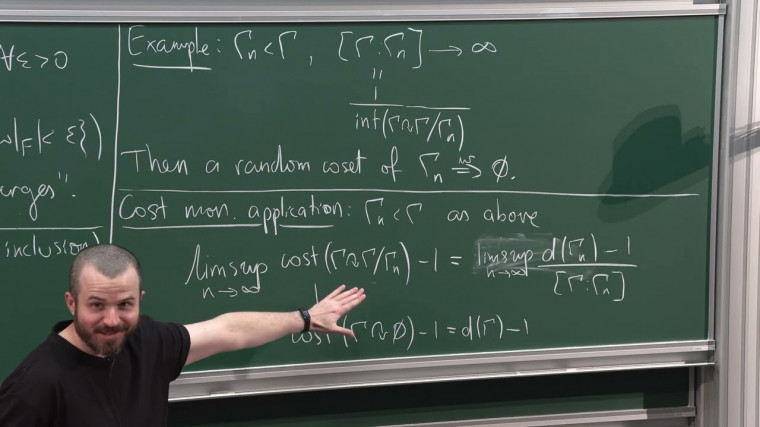 ∀ε>0
w|F|<ε})
erges".
inclusion)
Example: Γn<Γ, [Γ:Γn]→∞
"
1
int(Γ↷Γ/Γn)
Then a random coset of Γn ⇒ ∅.
Cost mon. application: Γn<Γ as above
limsup cost(Γ↷Γ/Γn)-1 = limsup d(Γn)-1
n→∞ n→∞ [Γ:Γn]
cost(Γ↷∅)-1=d(Γ)-1